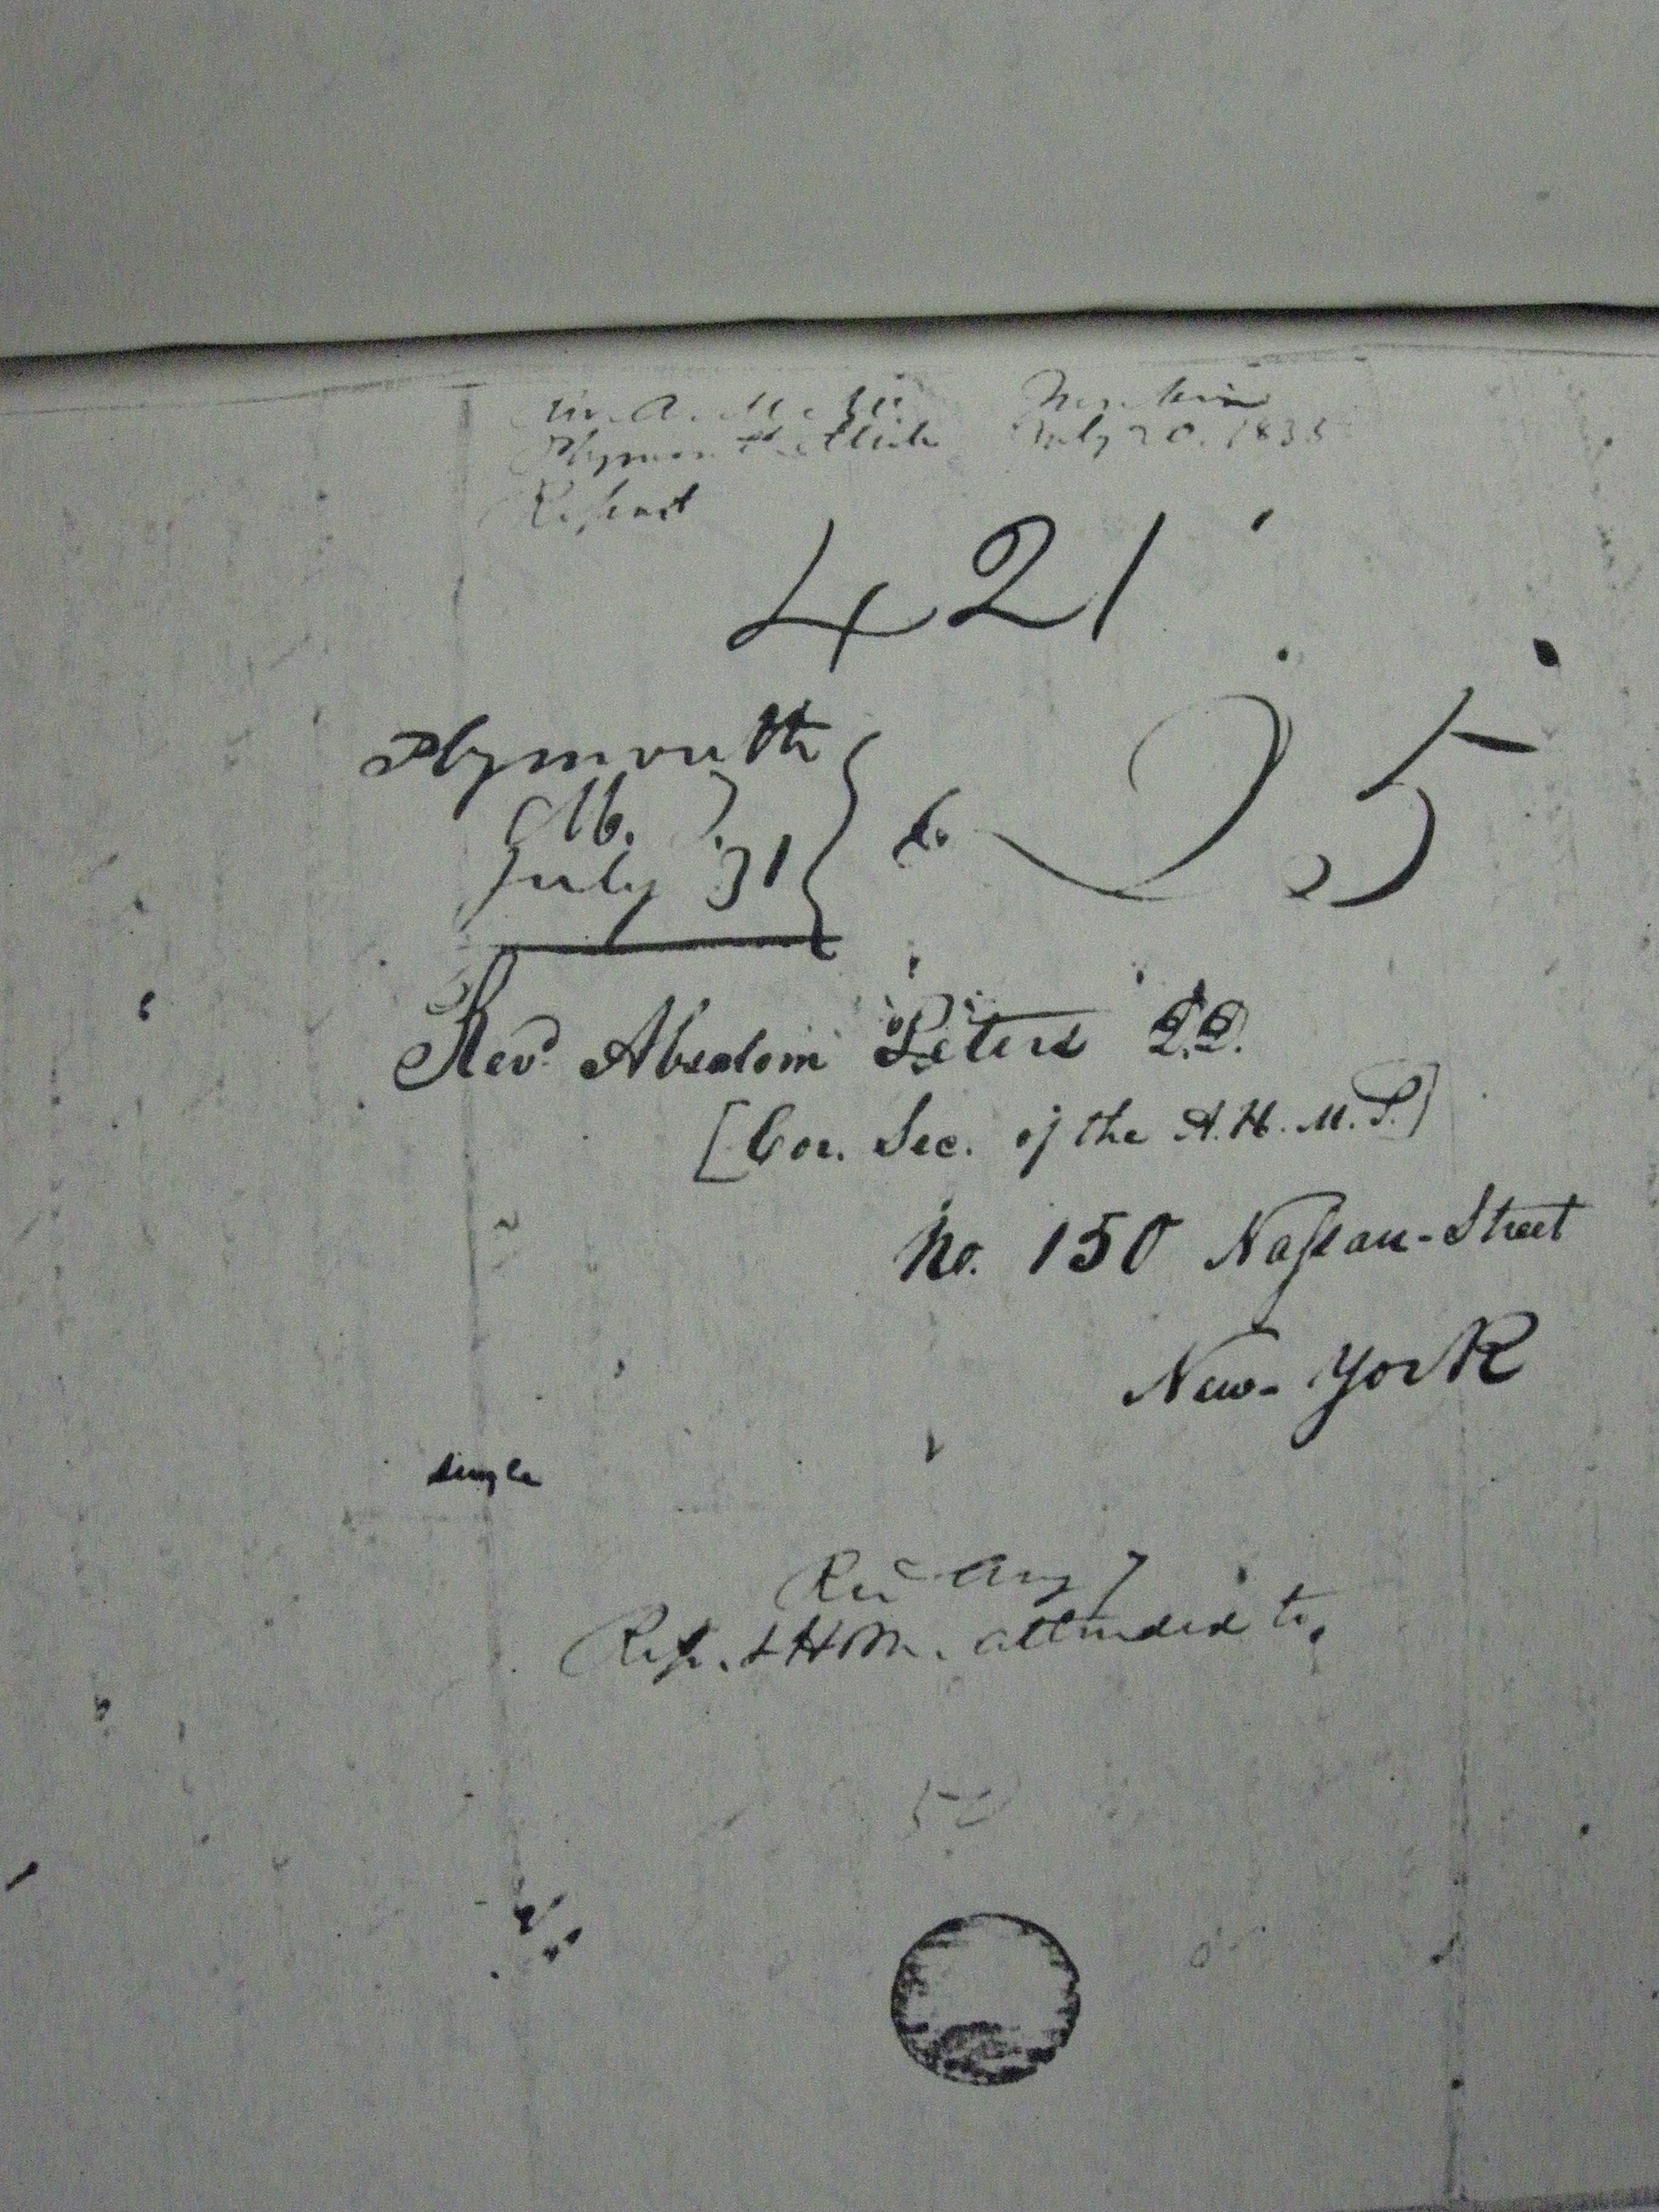 Plymouth Mich. July 20. 1835
Report
421
Plymouth
M. T.
July 31
25
Revd. Absalom Peters D.D.
[Cor. Sec. of the A. H. M. S.]
No. 150 Nassau-Street
New-York
single
Recd Aug 7
Rep. & H M. attended to.
50